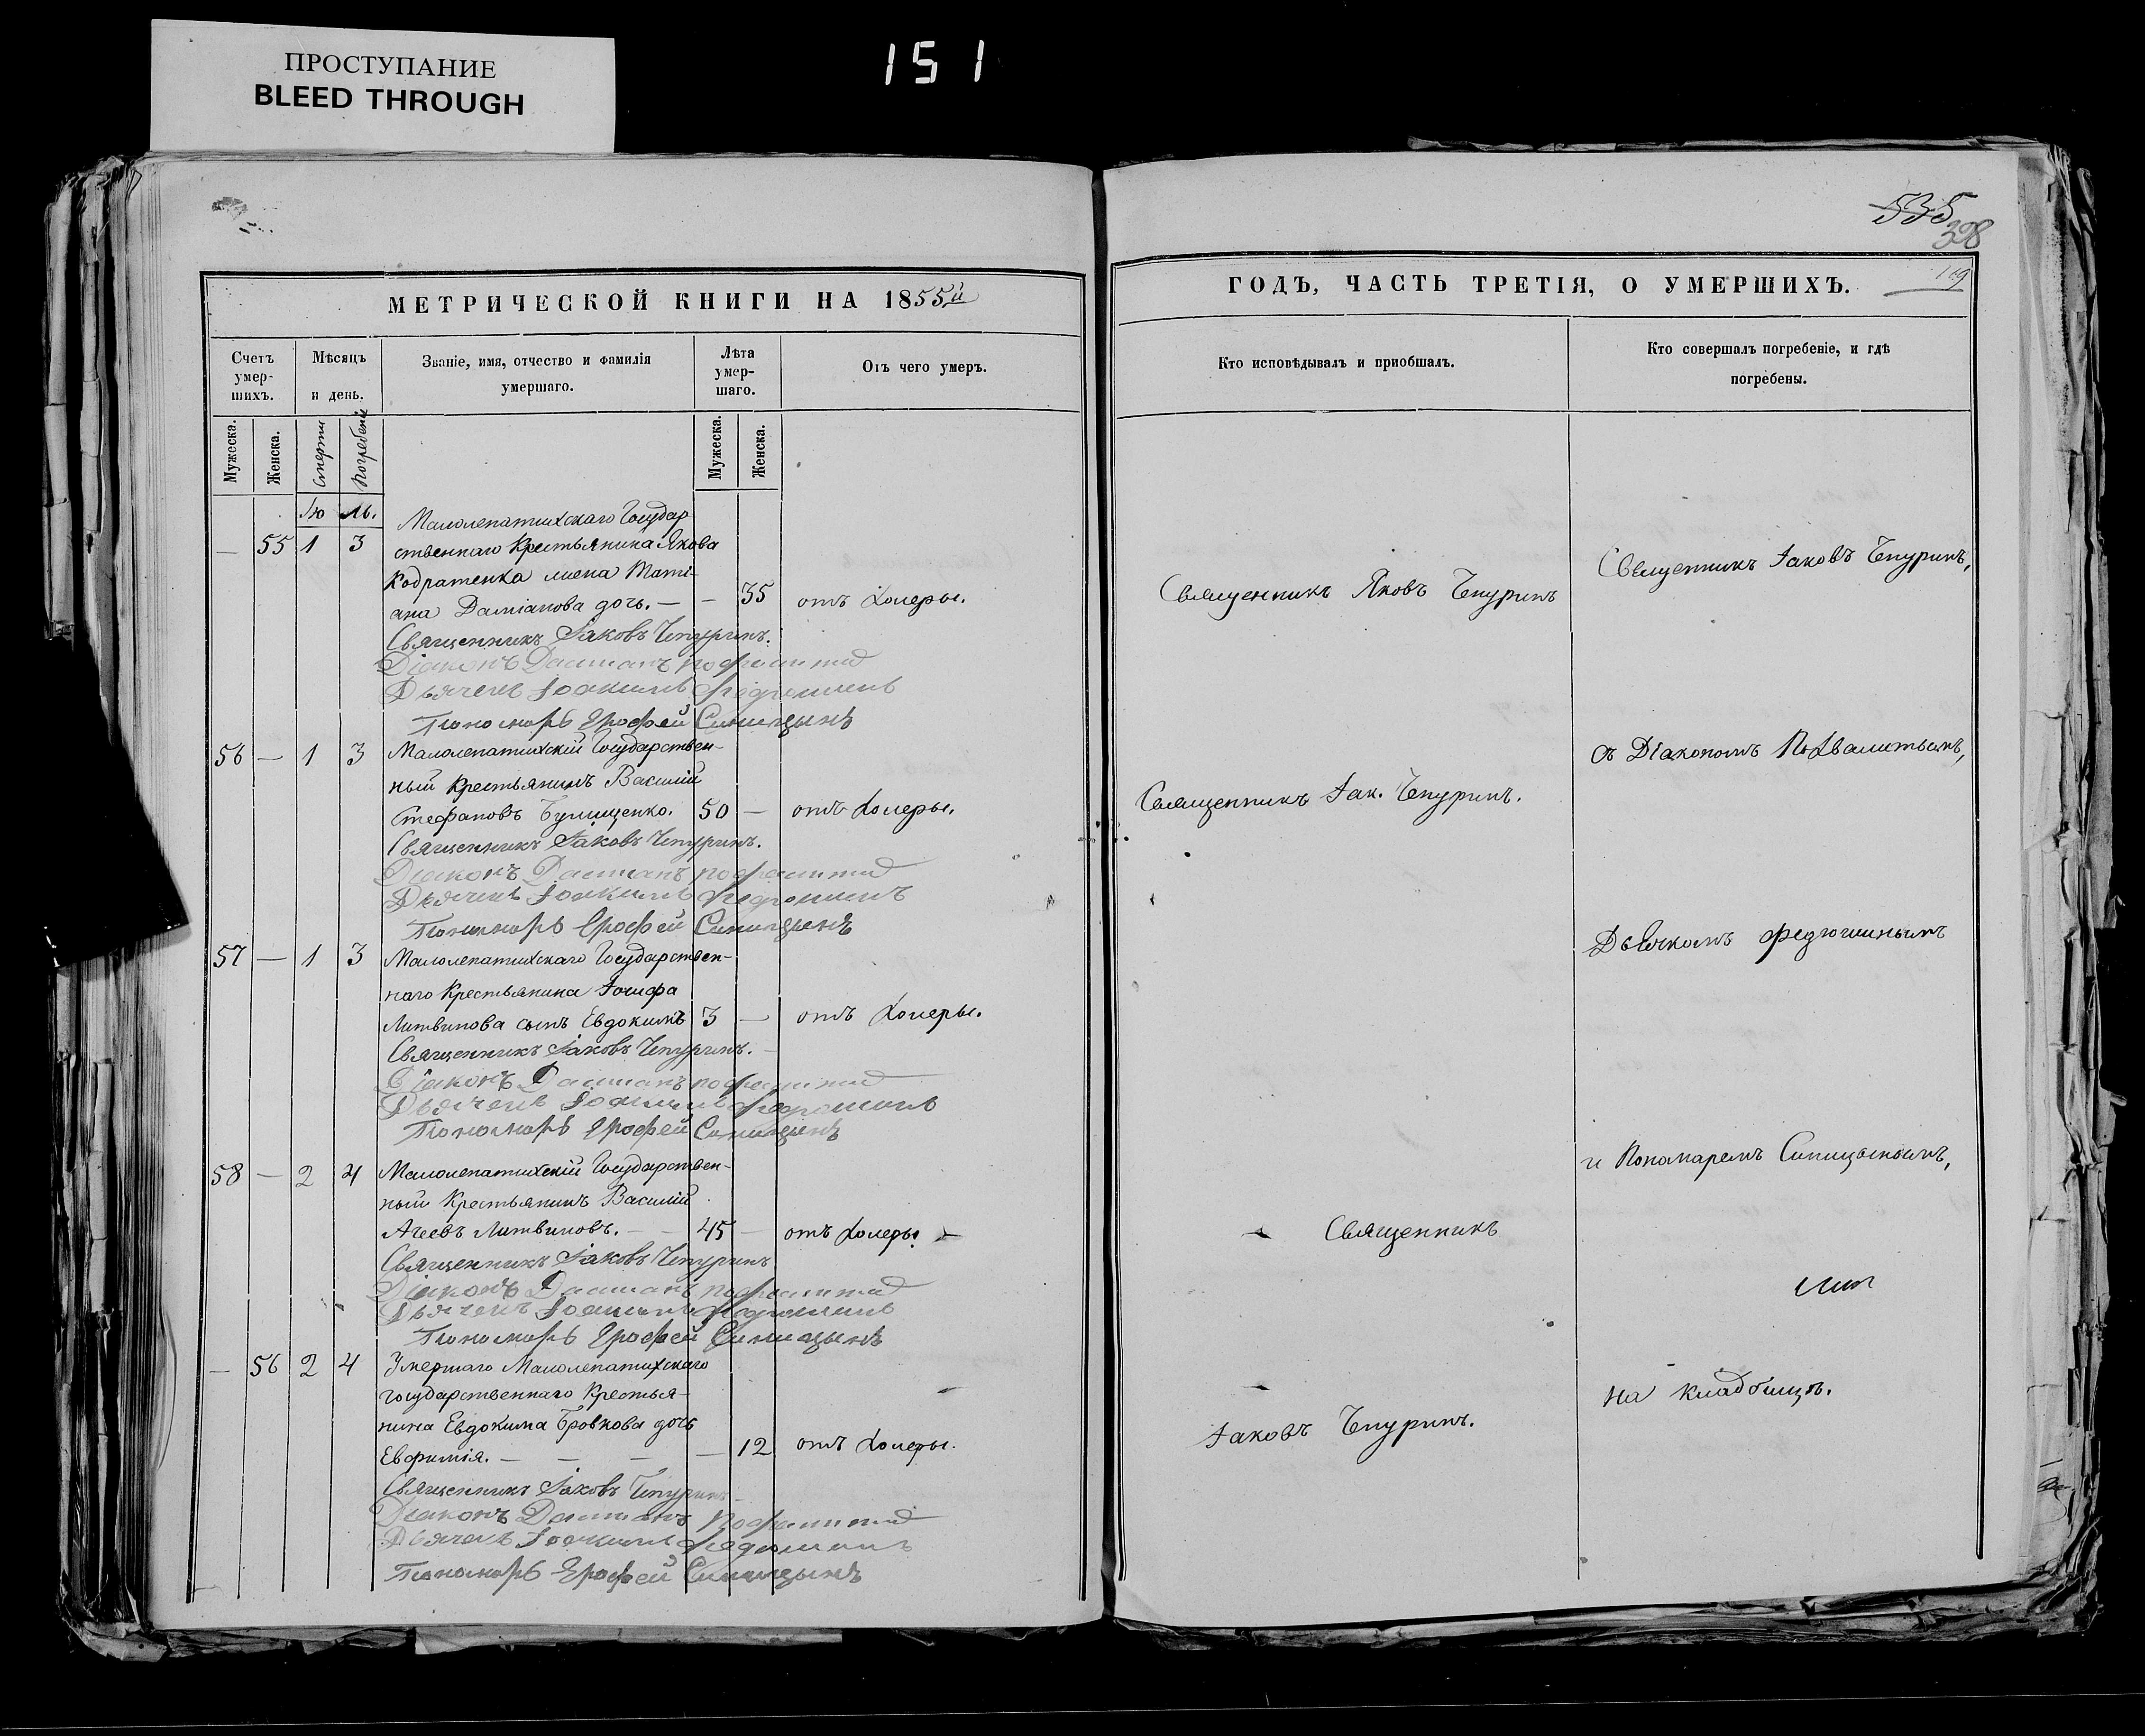 ПРОСТУПАНИЕ
BLEED THROUGH
151
535
398
МЕТРИЧЕСКОЙ КНИГИ НА 1855й
Счетъ умер-шихъ.
Мѣсяцъ и день.
Званіе, имя, отчество и фамилія умершаго.
Лѣта умер-шаго.
Отъ чего умеръ.
Мужеска.
Женска.
Смерти
Погребенія
Мужеска.
Женска.
Ію ль.
Малолепатихскаго Государ
— 55 1 3 ственнаго Крестьянина Якова
Кодратенка жена Таті-
ана Даміанова дочь. — — 35 отъ Холеры.
Священникъ Іаковъ Чепуринъ.
Діаконъ
Дьячекъ Іоакимъ
Пономарь Ерофей Синицынъ
56 — 1 3 Малолепатихскій Государствен-
ный Крестьянинъ Василій
Стефановъ 50 — отъ Холеры.
Священникъ Іаковъ Чепуринъ.
Діаконъ
Дьячекъ Іоакимъ
Пономарь Ерофей Синицынъ
57 — 1 3 Малолепатихскаго Государствен-
наго Крестьянина Іосифа
Литвинова сынъ Евдокимъ 3 — отъ Холеры.
Священникъ Іаковъ Чепуринъ.
Діаконъ
Дьячекъ Іоакимъ
Пономарь Ерофей Синицынъ
58 — 2 4 Малолепатихскій Государствен-
ный Крестьянинъ Василій
Агеевъ Литвиновъ. — 45 — отъ Холеры
Священникъ Іаковъ Чепуринъ
Діаконъ
Дьячекъ Іоакимъ
Пономарь Ерофей Синицынъ
— 56 2 4 Умершаго Малолепатихскаго
Государственнаго Крестья-
нина Евдокима Бровкова дочь
Евфимія. — — — — 12 отъ Холеры.
Священникъ Іаковъ Чепуринъ
Діаконъ
Дьячекъ Іоакимъ
Пономарь Ерофей Синицынъ
ГОДЪ, ЧАСТЬ ТРЕТІЯ, О УМЕРШИХЪ.
Кто исповѣдывалъ и пріобщалъ.
Кто совершалъ погребеніе, и гдѣ погребены.
Священникъ Яковъ Чепуринъ
Священникъ Іак. Чепуринъ.
Священникъ
Іаковъ Чепуринъ.
Священникъ Іаковъ Чепуринъ,
съ Діакономъ Похвалитымъ,
Дьячкомъ Федюшинымъ
и Пономаремъ Синицынымъ,
на кладбищѣ.